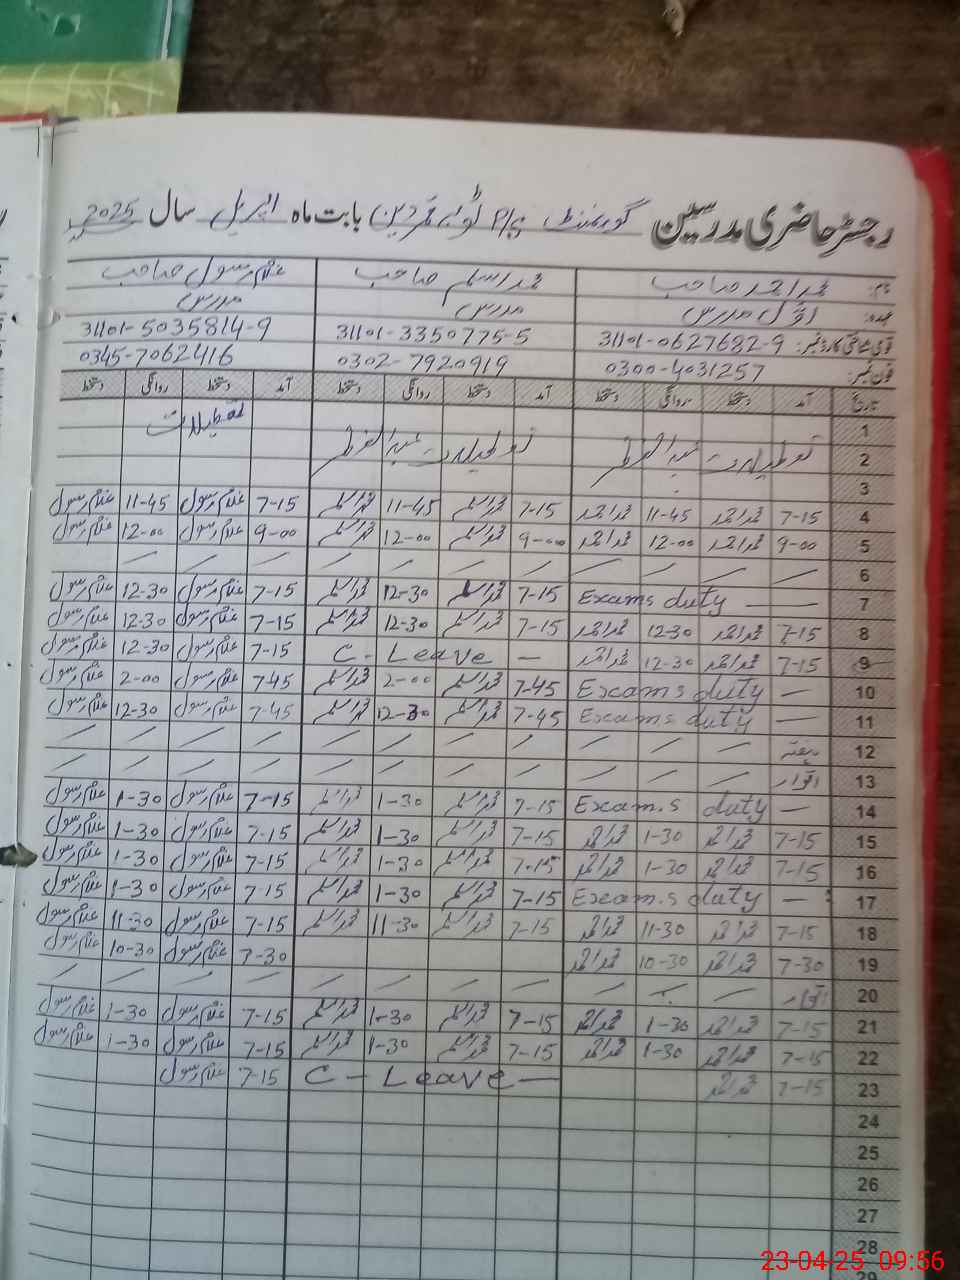 رجسٹر حاضری مدرسین گورنمنٹ P/S بابت ماہ اپریل سال 2025
نام: محمد احمد صاحب محمد اسلم صاحب غلام رسول صاحب
عہدہ: اوّل مدرس مدرس مدرس
قومی شناختی کارڈ نمبر: 31101-0627682-9 31101-3350775-5 31101-5035814-9
فون نمبر: 0300-4031257 0302-7920919 0345-7062416
تاریخ آمد دستخط روانگی دستخط آمد دستخط روانگی دستخط آمد دستخط روانگی دستخط
1 تعطیلات
2 تعطیلات عید الفطر تعطیلات عید الفطر
3
4 7-15 محمد احمد 11-45 محمد احمد 7-15 محمد اسلم 11-45 محمد اسلم 7-15 غلام رسول 11-45 غلام رسول
5 9-00 محمد احمد 12-00 محمد احمد 9-00 محمد اسلم 12-00 محمد اسلم 9-00 غلام رسول 12-00 غلام رسول
6 — — — — — — — — — — —
7 Exams duty — 7-15 محمد اسلم 12-30 محمد اسلم 7-15 غلام رسول 12-30 غلام رسول
8 7-15 محمد احمد 12-30 محمد احمد 7-15 محمد اسلم 12-30 محمد اسلم 7-15 غلام رسول 12-30 غلام رسول
9 7-15 محمد احمد 12-30 محمد احمد C - Leave — 7-15 غلام رسول 12-30 غلام رسول
10 Exams duty — 7-45 محمد اسلم 2-00 محمد اسلم 7-45 غلام رسول 2-00 غلام رسول
11 Exams duty — 7-45 محمد اسلم 12-30 محمد اسلم 7-45 غلام رسول 12-30 غلام رسول
12 ہفتہ — — — — — — — — — — —
13 اتوار — — — — — — — — — — —
14 Exams duty — 7-15 محمد اسلم 1-30 محمد اسلم 7-15 غلام رسول 1-30 غلام رسول
15 7-15 محمد احمد 1-30 محمد احمد 7-15 محمد اسلم 1-30 محمد اسلم 7-15 غلام رسول 1-30 غلام رسول
16 7-15 محمد احمد 1-30 محمد احمد 7-15 محمد اسلم 1-30 محمد اسلم 7-15 غلام رسول 1-30 غلام رسول
17 Exams duty — 7-15 محمد اسلم 1-30 محمد اسلم 7-15 غلام رسول 1-30 غلام رسول
18 7-15 محمد احمد 11-30 محمد احمد 7-15 محمد اسلم 11-30 محمد اسلم 7-15 غلام رسول 11-30 غلام رسول
19 7-30 محمد احمد 10-30 محمد احمد 7-30 غلام رسول 10-30 غلام رسول
20 اتوار — — — — — — — — — — —
21 7-15 محمد احمد 1-30 محمد احمد 7-15 محمد اسلم 1-30 محمد اسلم 7-15 غلام رسول 1-30 غلام رسول
22 7-15 محمد احمد 1-30 محمد احمد 7-15 محمد اسلم 1-30 محمد اسلم 7-15 غلام رسول 1-30 غلام رسول
23 7-15 محمد احمد C - Leave — 7-15 غلام رسول
24
25
26
27
28
29
23-04-25 09:56